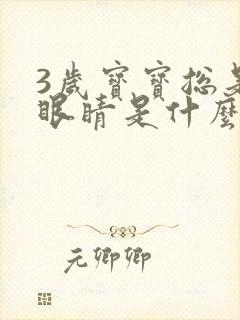 3歲寶寶總是
眼睛是什麼
元卿卿